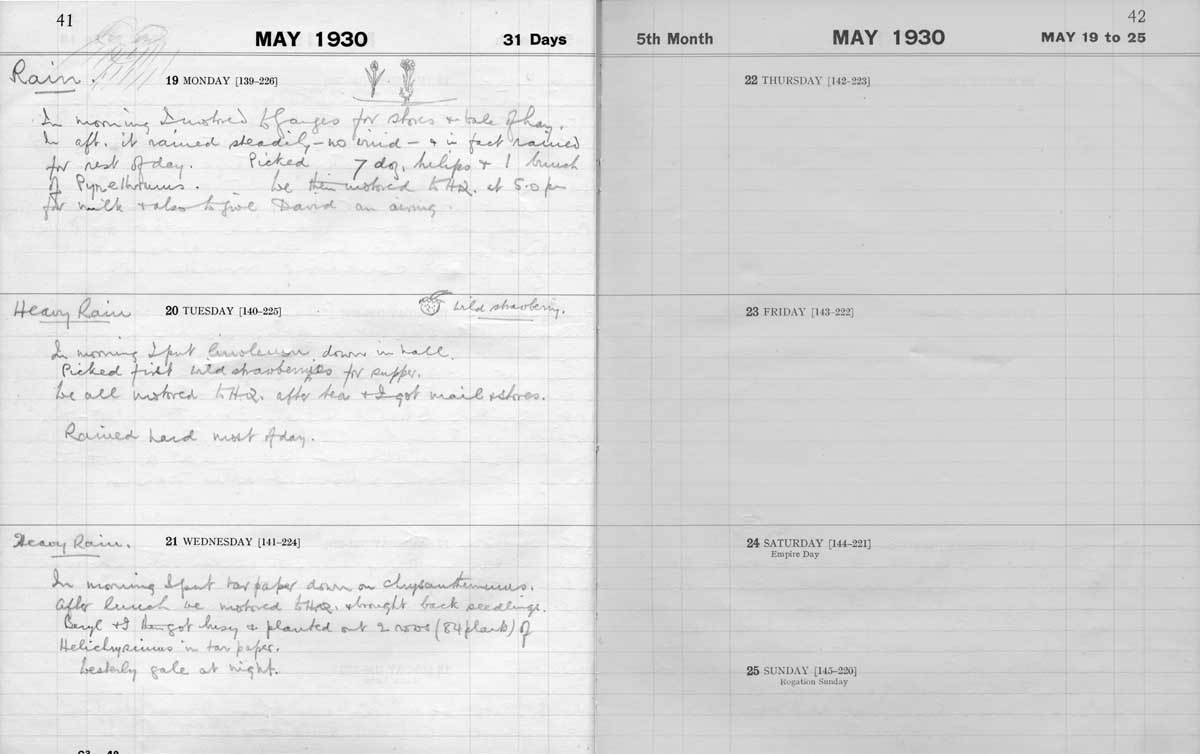 41
MAY 1930
31 Days
Rain.
19 MONDAY [139–226]
In morning I motored to Ganges for stores & bale of hay.
In aft. it rained steadily – no wind – & in fact rained
for rest of day. Picked 7 doz. tulips & 1 bunch
of Pyrethrums. We then motored to H.Q. at 5.0 pm
for milk & also to give David an airing.
Heavy Rain
20 TUESDAY [140–225]
Wild strawberry.
In morning I put linoleum down in hall.
Picked first wild strawberries for supper.
We all motored to H.Q. after tea & I got mail & stores.
Rained hard most of day.
Heavy Rain.
21 WEDNESDAY [141–224]
In morning I put tar paper down on Chrysanthemums.
After lunch we motored to H.Q. & brought back seedlings.
Beryl & I then got busy & planted out 2 rows (84 plants) of
Helichrysums in tar paper.
Westerly gale at night.
42
5th Month
MAY 1930
MAY 19 to 25
22 THURSDAY [142–223]
23 FRIDAY [143–222]
24 SATURDAY [144–221]
Empire Day
25 SUNDAY [145–220]
Rogation Sunday